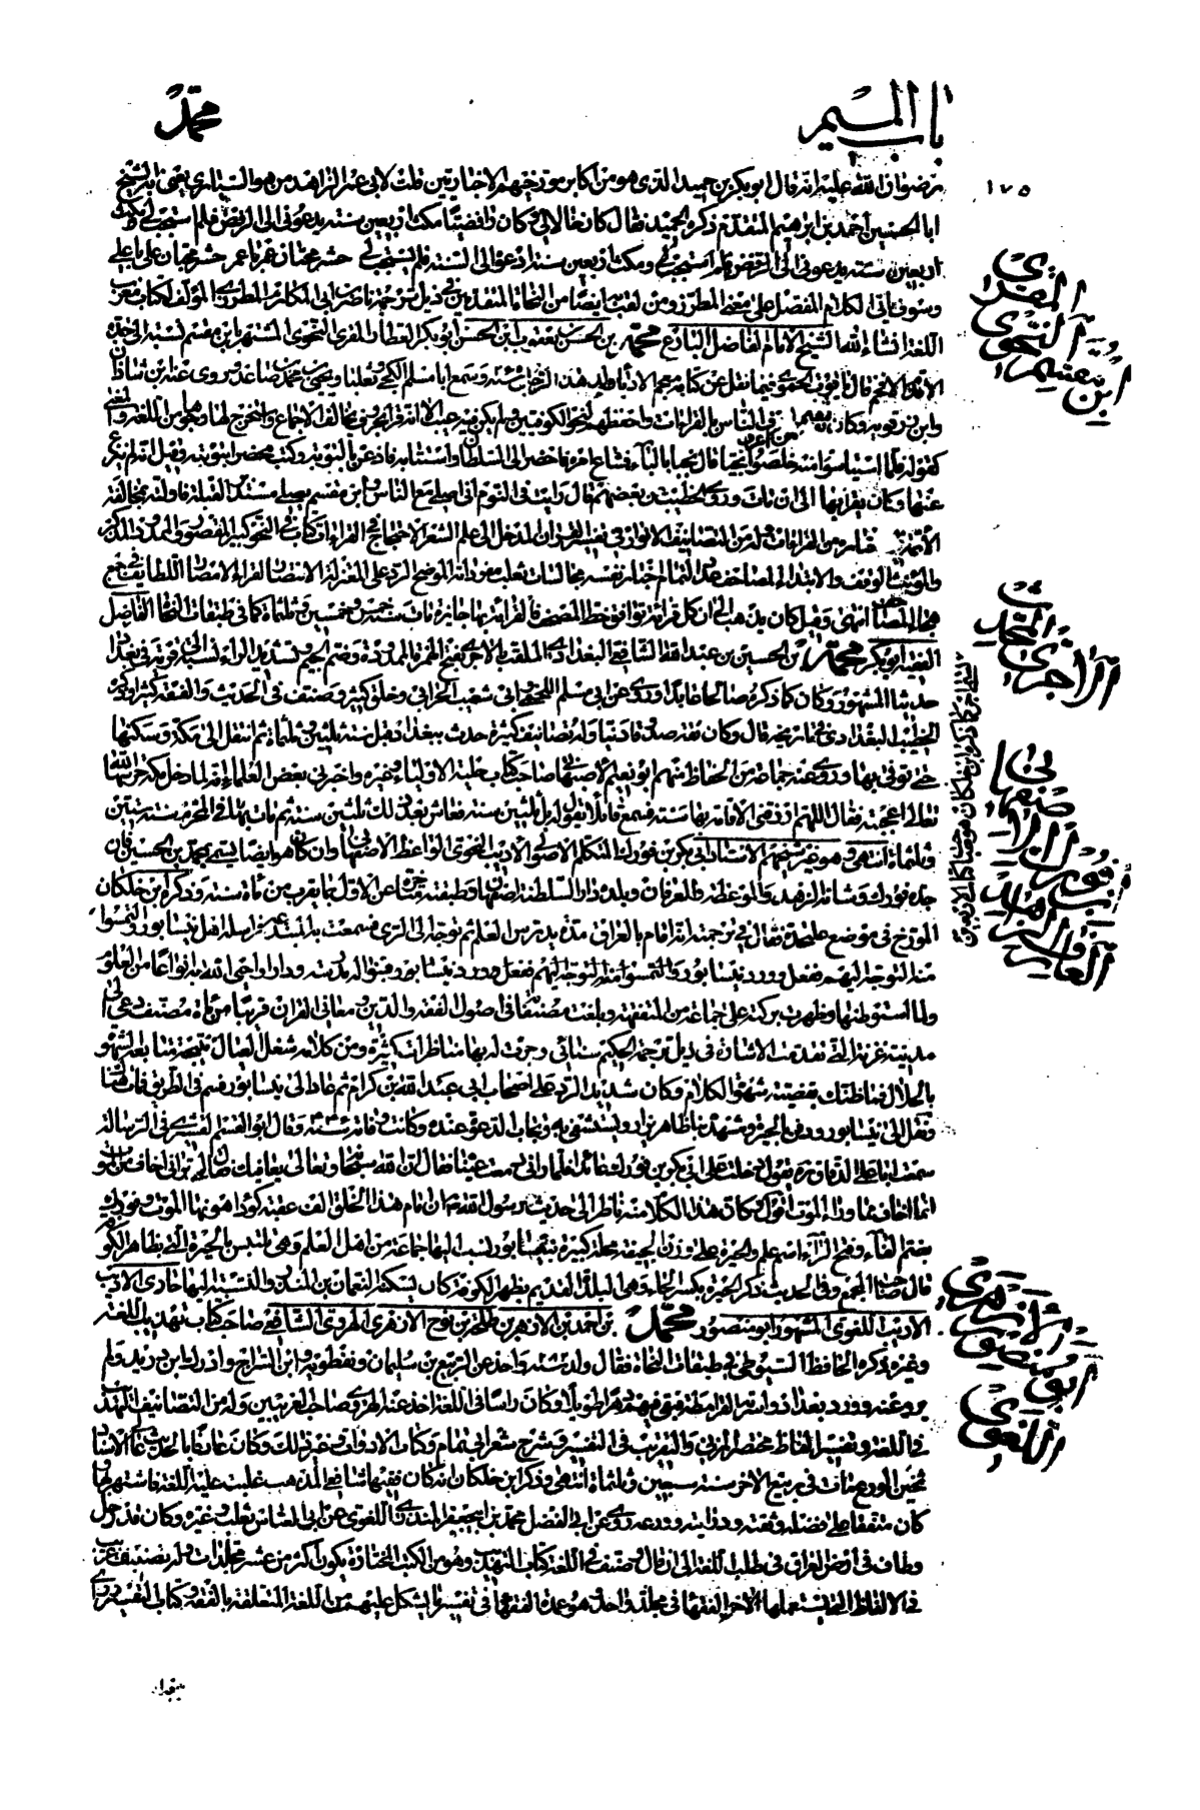 باب الميم
محمد
١٧٥
رضوان الله عليه انه قال ابو بكر بن حميد الذى هو من اكابر مورخيهم الاخباريين قلت لابى عمر الزاهد من هو السيارى يعنى به الشيخ
ابا الحسين احمد بن ابرهيم المتقدم ذكره الحميد فقال كان خالا لى كان رافضيا مكث اربعين سنة يدعونى الى الرفض فلم استجب له ومكثت
اربعين سنة يدعونى الى الرفض فلم استجب له ومكثت اربعين سنة ادعوه الى السنة فلم يستجب لى
وسوف ياتى الكلام المفصل على معنى المطرز ومن لقب به ايضا من النحاة المتقدمين فى ذيل ترجمة ناصر بن ابى المكارم المطرزى المؤلف لكتاب مغرب
اللغة انشاء الله الشيخ الامام الفاضل البارع محمد بن الحسن بن يعقوب بن الحسن ابو بكر العطار المقرى النحوى المشتهر بابن مقسم نسبة الى جده
قال ياقوت الحموى فيما نقل عن كتابه معجم الادباء ولد هذا الرجل سنة وسمع ابا مسلم الكجى وثعلبا ويحيى بن محمد بن صاعد وروى عنه ابن شاذان
وابن رزقويه وكان من اعرف الناس بالقراءات واحفظهم لنحو الكوفيين ولم يكن فيه عيب الا انه قرأ بحروف تخالف الاجماع واستخرج لها وجوها من اللغة والمعنى
كقوله فلما استياسوا منه خلصوا نجيا قال نجبا بالباء فشاع امره فاحضر الى السلطان واستتابه فاذعن بالتوبة وكتب محضر بتوبته وقيل انه لم ينزع
عنها وكان يقرأ بها الى ان مات وروى الخطيب عن بعضهم قال رايت فى النوم انى اصلى مع الناس وابن مقسم يصلى مستدبر القبلة فاولته بمخالفته
الائمة فيما اختاره من القراءات وله من التصانيف الانوار فى تفسير القران المدخل الى علم الشعر الاحتجاج فى القراءات كتاب فى النحو كبير المقصور والممدود المذكر
والمؤنث الوقف والابتداء المصاحف عدد التمام اخبار نفسه مجالسات ثعلب مفرداته الموضح الرد على المعتزلة الانتصار لقراء الامصار اللطائف فى جمع
هجاء المصاحف انتهى وقيل كان يذهب الى ان كل قراءة توافق خط المصحف فالقراءة بها جائزة مات سنة خمس وخمسين وثلثمائة كما فى طبقات النحاة الفاضل
الفقيه ابو بكر محمد بن الحسين بن عبد الله الشافعى البغدادى الملقب بالاجرى بفتح الهمزة الممدودة وضم الجيم وتشديد الراء نسبة الى قرية فى بغداد
حديثنا المشهور وكان كما ذكره صالحا عابدا وروى عن ابى مسلم الكجى وابى شعيب الحرانى وخلق كثير وصنف فى الحديث والفقه كثيرا وذكره
الخطيب البغدادى فى تاريخه قال وكان ثقة صدوقا دينا وله تصانيف كثيرة حدث ببغداد قبل سنة ثلثين وثلثمائة ثم انتقل الى مكة وسكنها
حتى توفى بها وروى عنه جماعة من الحفاظ منهم ابو نعيم الاصبهانى صاحب كتاب حلية الاولياء وغيره واخبرنى بعض العلماء انه لما دخل مكة حرسها الله
تعالى اعجبته فقال اللهم ارزقنى الاقامة بها سنة فسمع هاتفا يقول له بل ثلثين سنة فعاش بعد ذلك ثلثين سنة ثم مات بها فى المحرم سنة ستين
وثلثمائة انتهى وهو غير شيخهم الاستاد ابى بكر بن فورك المتكلم الاصولى الاديب النحوى الواعظ الاصفهانى وان كان هو ايضا يسمى بمحمد بن الحسين فان
جده فورك وشانه الزهد والموعظة والعرفان وبلده دار السلطنة اصفهان وطبقته متاخرة عن الاول بما يقرب من مأة سنة وذكره ابن خلكان
المورخ فى موضع عليحدة فقال فى ترجمته انه اقام بالعراق مدة يدرس العلم ثم توجه الى الرى فسمعت به المبتدعة فراسله اهل نيسابور والتمسوا
منه التوجه اليهم ففعل وورد نيسابور فبنوا له المدرسة ودارا واحيى الله به انواعا من العلوم
ولما استوطنها وظهرت بركته على جماعة من المتفقهة وبلغت مصنفاته فى اصول الفقه والدين ومعانى القران قريبا من مأة مصنف دعى الى
مدينة غزنة التى تقدمت الاشارة فى ذيل ترجمة الحكيم سنائى وجرت له بها مناظرات كثيرة ومن كلامه شغل العيال نتيجة متابعة الشهوة
بالحلال فما ظنك بقضية شهوة الحرام وكان شديد الرد على اصحاب ابى عبد الله بن كرام ثم عاد الى نيسابور فسم فى الطريق فمات هناك
ونقل الى نيسابور ودفن بالحيرة ومشهده بها ظاهر يزار ويستشفى به وتجاب الدعوة عنده وكانت وفاته سنة وقال ابو القسم القشيرى فى الرسالة
سمعت ابا على الدقاق ره يقول دخلت على ابى بكر بن فورك عائدا فلما رانى دمعت عيناه فقلت ان الله سبحانه وتعالى يعافيك فقال لى ترانى اخاف من الموت
انما اخاف مما وراء الموت اقول كان هذا الكلام منه ناظر الى حديث رسول الله ان امام هذا الخلق الف عقبة كؤد اهونها الموت وفورك
بضم الفاء وفتح الراء اسم علم والحيرة على وزن الجيفة محلة كبيرة بنيسابور نسب اليها جماعة من اهل العلم وهى تلتبس بالحيرة التى بظاهر الكوفة
قال صاحب المجمع وفى الحديث ذكر الحيرة بكسر الحاء وهى البلد القديم بظهر الكوفة كان يسكنه النعمان بن المنذر والنسبة اليها حارى الاديب
الاريب اللغوى المشهور ابو منصور محمد بن احمد بن الازهر بن طلحة بن نوح الازهرى الهروى الشافعى صاحب كتاب تهذيب اللغة
وغيره ذكره الحافظ السيوطى فى طبقات النحاة فقال ولد سنة واخذ عن الربيع بن سليمان ونفطويه وابن السراج وادرك ابن دريد ولم
يرو عنه وورد بغداد واسرته القرامطة فبقى فيهم دهرا طويلا وكان راسا فى اللغة اخذ عنه الهروى صاحب الغريبين وله من التصانيف التهذيب
فى اللغة وتفسير الفاظ مختصر المزنى والتقريب فى التفسير وشرح شعر ابى تمام وكتاب الادوات وغير ذلك وكان عارفا بالحديث عالى الاسناد
ثخين الورع مات فى ربيع الاخر سنة سبعين وثلثمائة انتهى وذكر ابن خلكان انه كان فقيها شافعى المذهب غلبت عليه اللغة فاشتهر بها
كان متفقا على فضله وثقته ودرايته وورعه روى عن ابى الفضل محمد بن ابى جعفر المنذرى اللغوى عن ابى العباس ثعلب وغيره وكان قد رحل
وطاف فى ارض العراق فى طلب اللغة الى ان قال وصنف فى اللغة كتاب التهذيب وهو من الكتب المختارة يكون اكثر من عشر مجلدات وله تصنيف فى غريب
الالفاظ التى يستعملها الفقهاء فى مجلد واحد وهو عمدة الفقهاء فى تفسير ما يشكل عليهم من اللغة المتعلقة بالفقه وكتاب التفسير وراى
المقرى
النحوى
ابن مقسم
الآجرى المحدث
ابن فورك الاصفهانى
العارف الزاهد
الازهرى
ابو منصور
اللغوى
ببغداد